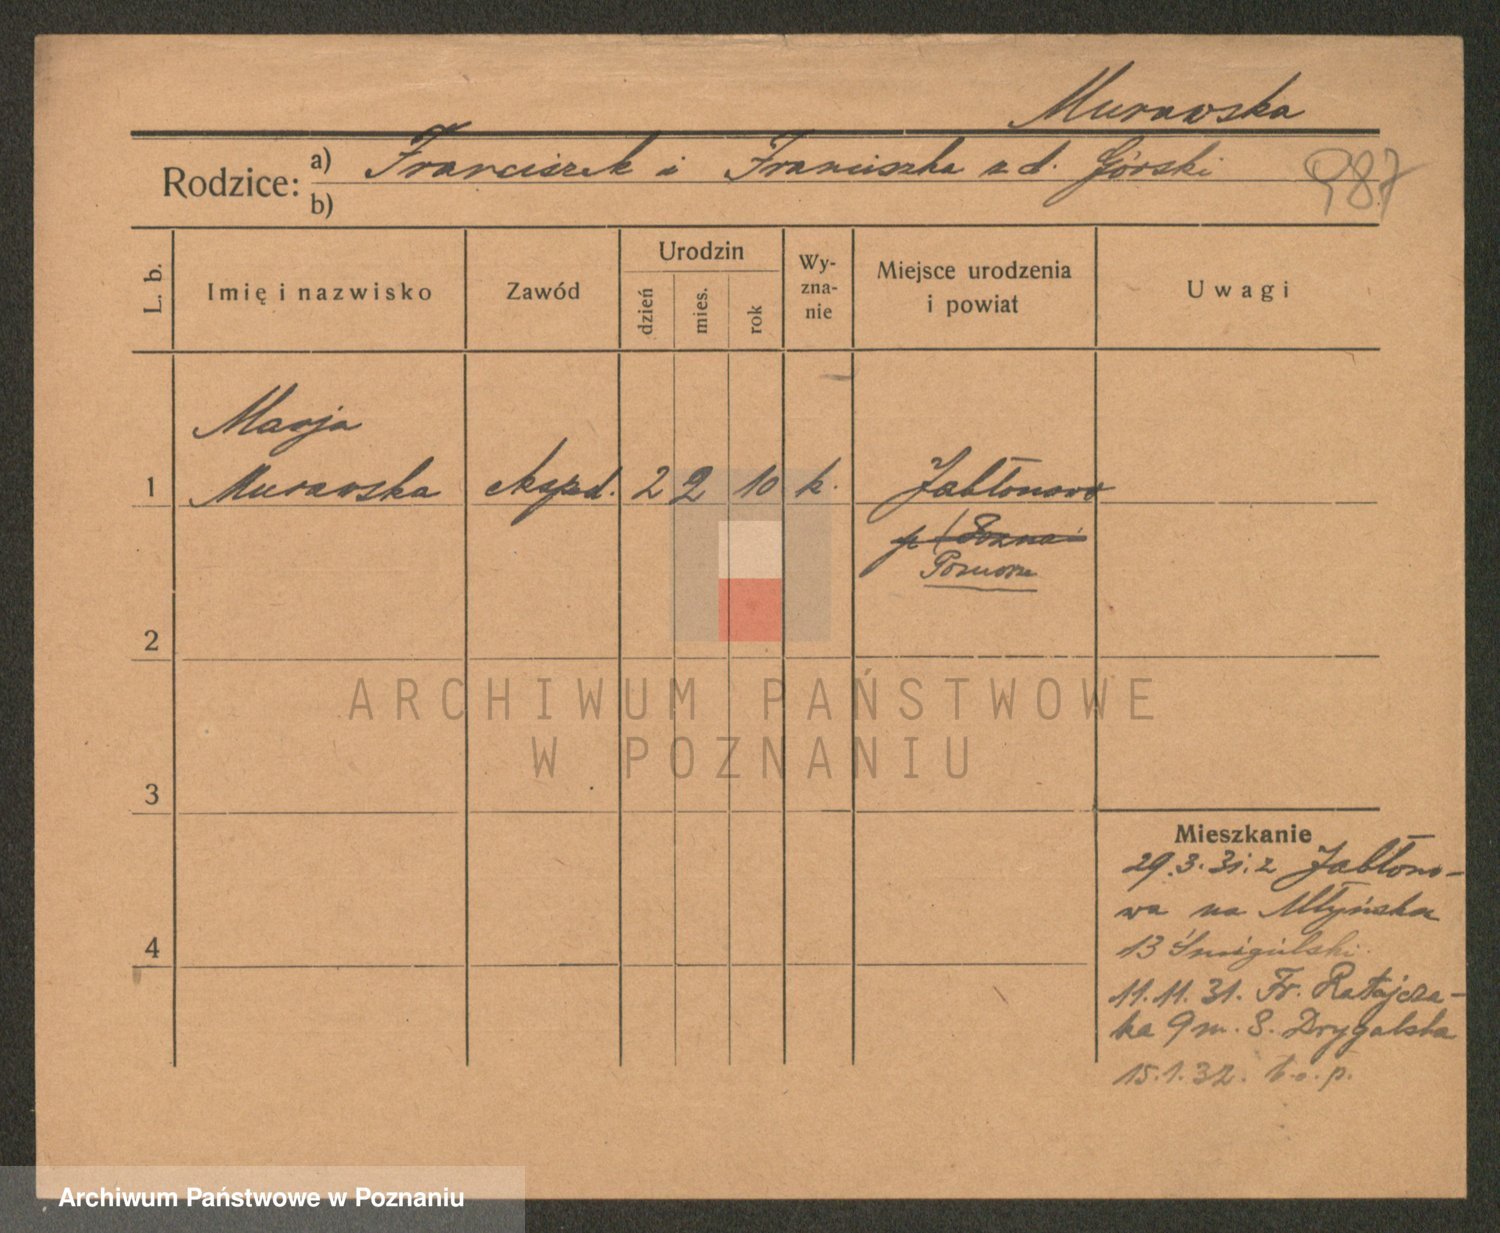 Murawska
Rodzice: a) Franciszek i Franciszka z d. Górski
987
b)
L. b.
Imię i nazwisko
Zawód
Urodzin
dzień
mies.
rok
Wy-
zna-
nie
Miejsce urodzenia
i powiat
Uwagi
Marja
1 Murawska eksped. 2 2 10 k. Jabłonowo
p/Pozna
Pomorze
2
3
4
ARCHIWUM PAŃSTWOWE
W POZNANIU
Mieszkanie
29.3.31. z Jabłono-
wa na Młyńska
13 Śmigielski
11.11.31. Fr. Ratajcza-
ka 9 m. 8. Drygalska
15.1.32. b.o.p.
Archiwum Państwowe w Poznaniu